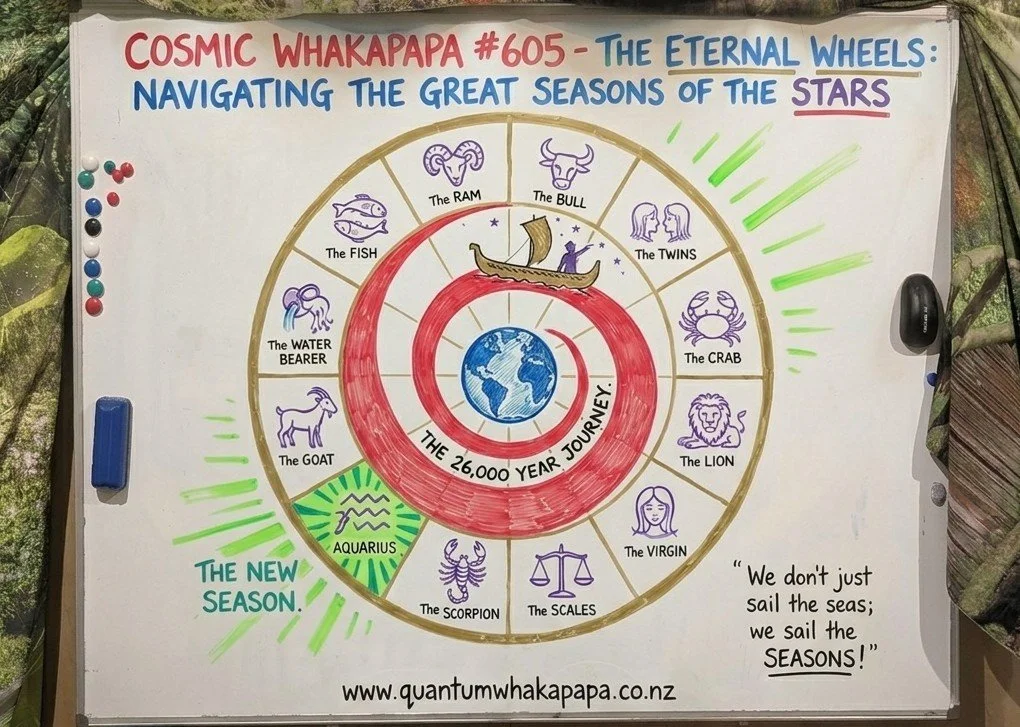 COSMIC WHAKAPAPA #605 - THE ETERNAL WHEELS:
NAVIGATING THE GREAT SEASONS OF THE STARS
The RAM
The BULL
The FISH
The TWINS
The WATER
BEARER
The CRAB
The GOAT
The LION
THE 26,000 YEAR JOURNEY.
AQUARIUS
The VIRGIN
The SCORPION
The SCALES
THE NEW
SEASON.
"We don't just
sail the seas;
we sail the
SEASONS!"
www.quantumwhakapapa.co.nz